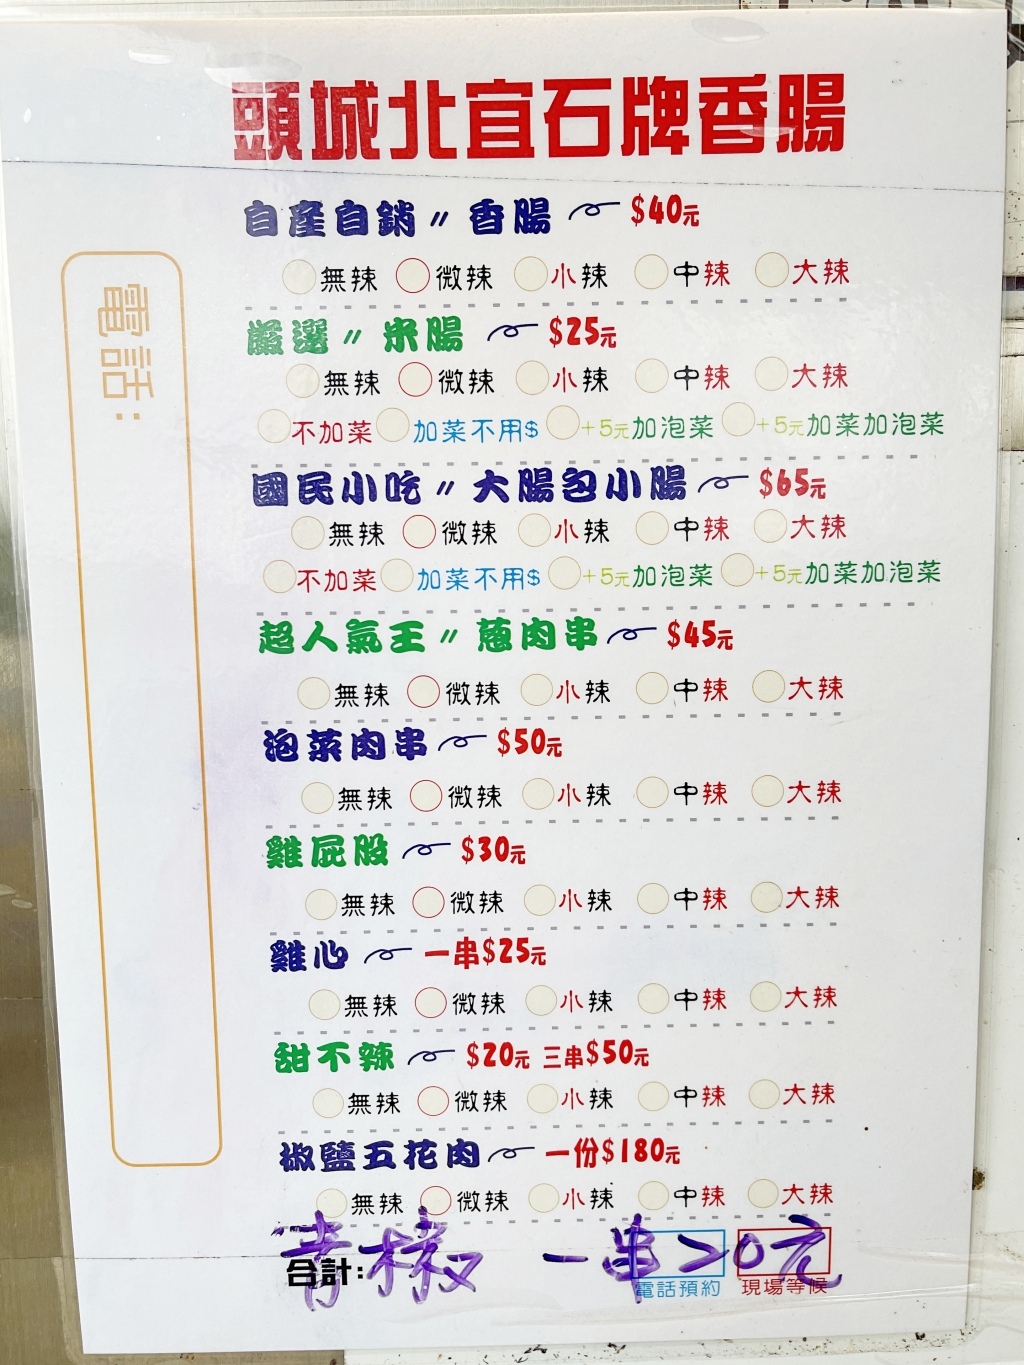 頭城北宜石牌香腸
電話:
自產自銷〃香腸 $40元
無辣 微辣 小辣 中辣 大辣
嚴選〃米腸 $25元
無辣 微辣 小辣 中辣 大辣
不加菜 加菜不用$ +5元加泡菜 +5元加菜加泡菜
國民小吃〃大腸包小腸 $65元
無辣 微辣 小辣 中辣 大辣
不加菜 加菜不用$ +5元加泡菜 +5元加菜加泡菜
超人氣王〃蔥肉串 $45元
無辣 微辣 小辣 中辣 大辣
泡菜肉串 $50元
無辣 微辣 小辣 中辣 大辣
雞屁股 $30元
無辣 微辣 小辣 中辣 大辣
雞心 一串$25元
無辣 微辣 小辣 中辣 大辣
甜不辣 $20元 三串$50元
無辣 微辣 小辣 中辣 大辣
椒鹽五花肉 一份$180元
無辣 微辣 小辣 中辣 大辣
青椒 一串20元
合計:
電話預約 現場等候